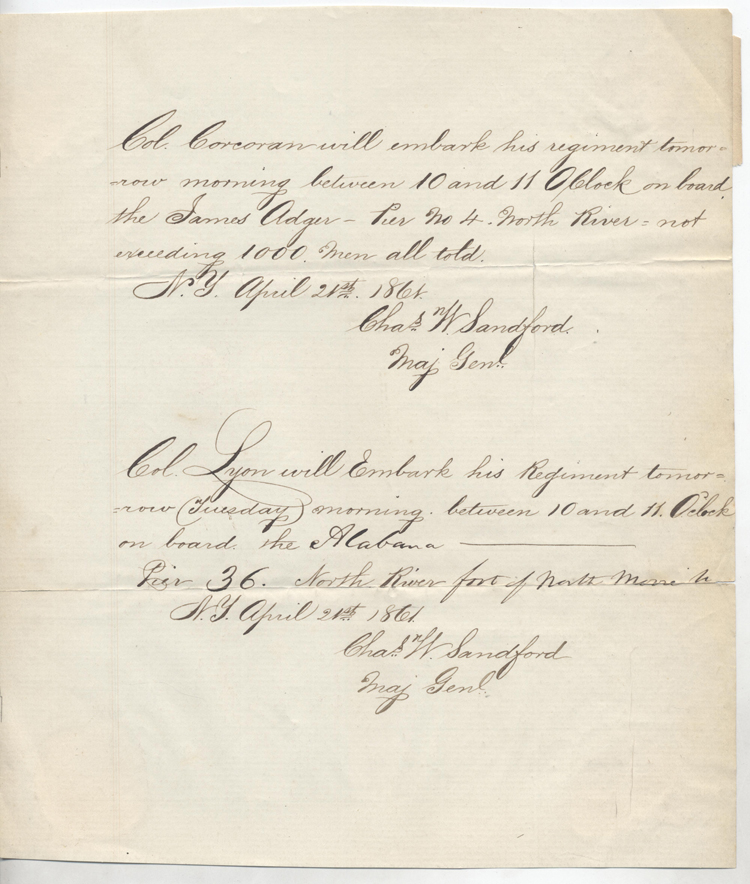 Col. Corcoran will embark his regiment tomor=
=row morning between 10 and 11 OClock on board
the James Adger - Pier No 4. North River = not
exceeding 1000. Men all told.
N.Y. April 21st. 1861.
Chas W. Sandford.
Maj Genl.
Col. Lyon will Embark his Regiment tomor=
=row (Tuesday) morning. between 10 and 11. Oclock
on board. the Alabana
Pier 36. North River foot of North Moore
N.Y. April 21st 1861.
Chas W. Sandford
Maj Genl.